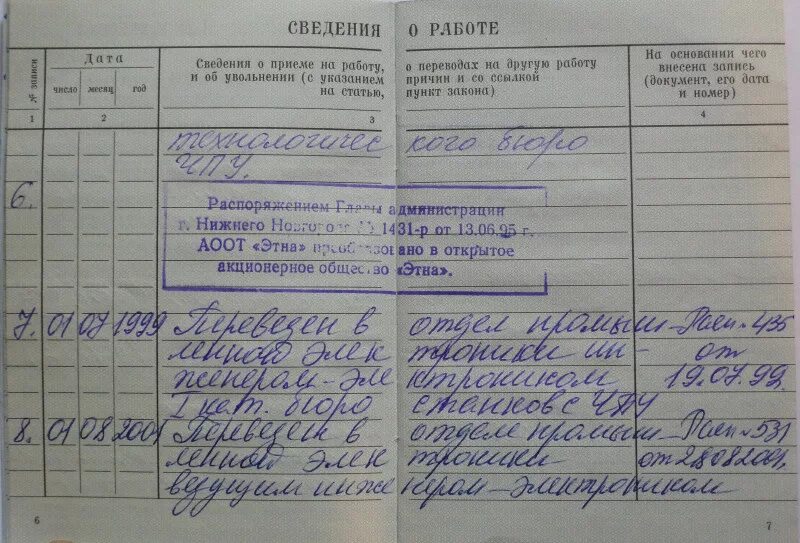 СВЕДЕНИЯ О РАБОТЕ
№ записи
Дата
число месяц год
Сведения о приеме на работу, о переводах на другую работу
и об увольнении (с указанием причин и со ссылкой
на статью, пункт закона)
На основании чего
внесена запись
(документ, его дата
и номер)
1 2 3 4
технологичес кого бюро
ЧПУ.
6.
Распоряжением Главы администрации
г. Нижнего Новгорода № 1431-р от 13.06.95 г.
АООТ «Этна» преобразовано в открытое
акционерное общество «Этна».
7. 01 07 1999 Переведен в отдел промыш- Расп № 435
ленной элек троники ин- от
женером-эле ктроником 19.07.99.
I кат. бюро станков с ЧПУ
8. 01 08 2001 Переведен в отделе промыш- Расп № 531
ленной элек троники от 28.08.2001.
ведущим инже нером-электроником
6 7